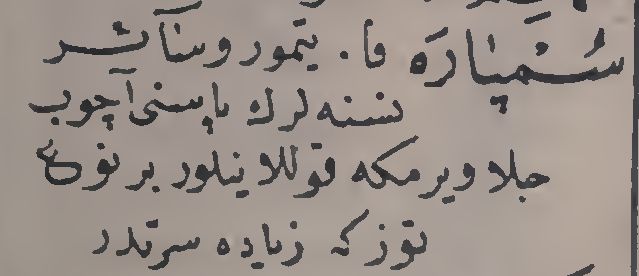 سُنْمپَارَه فا. يتمور وسائر
نسنه لرك پاسنى آچوب
جلا ويرمكه قوللانيلور بر نوع
توز كه زياده سرتدر